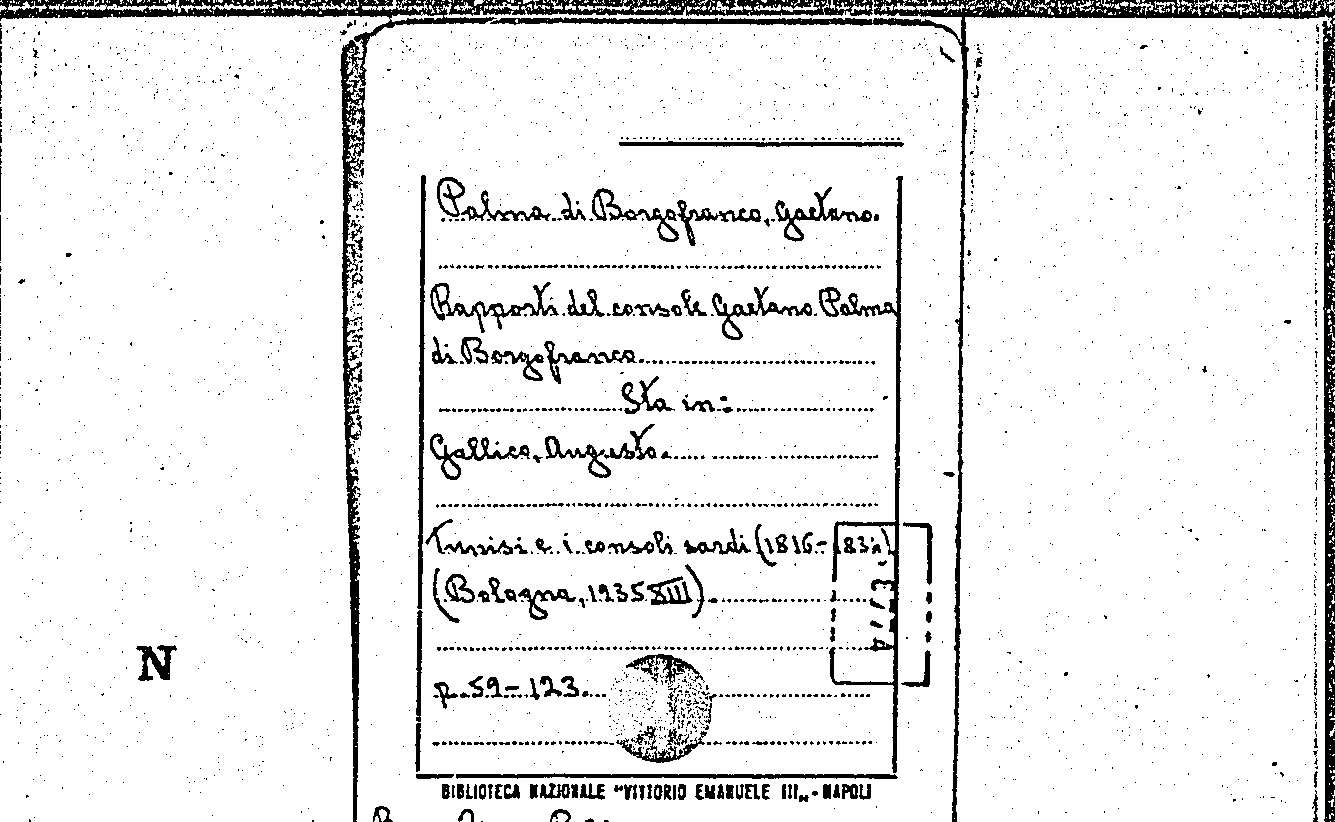 Palma di Borgofranco, Gaetano.
Rapporti del console Gaetano Palma
di Borgofranco.
Sta in:
Gallico, Augusto.
Tunisi e i consoli sardi (1816-
(Bologna, 1935 XIII).
p. 59-123.
N
BIBLIOTECA NAZIONALE "VITTORIO EMANUELE III„ - NAPOLI